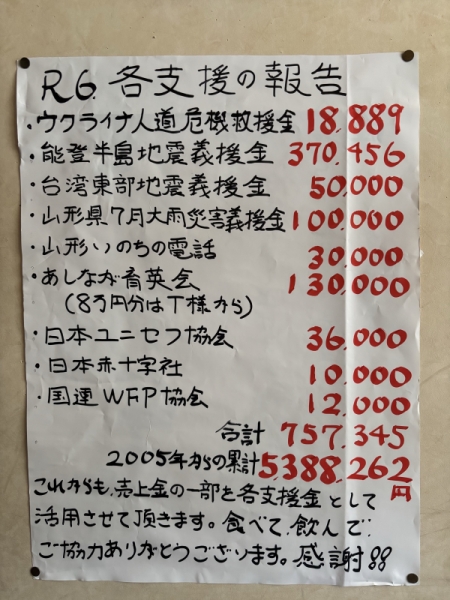 R6. 各支援の報告
・ウクライナ人道危機救援金 18,889
・能登半島地震義援金 370,456
・台湾東部地震義援金 50,000
・山形県7月大雨災害義援金 100,000
・山形いのちの電話 30,000
・あしなが育英会 130,000
(8万円分はT様から)
・日本ユニセフ協会 36,000
・日本赤十字社 10,000
・国連WFP協会 12,000
合計 757,345
2005年からの累計 5,388,262円
これからも、売上金の一部を各支援金として
活用させて頂きます。食べて、飲んで、
ご協力ありがとうございます。感謝!!